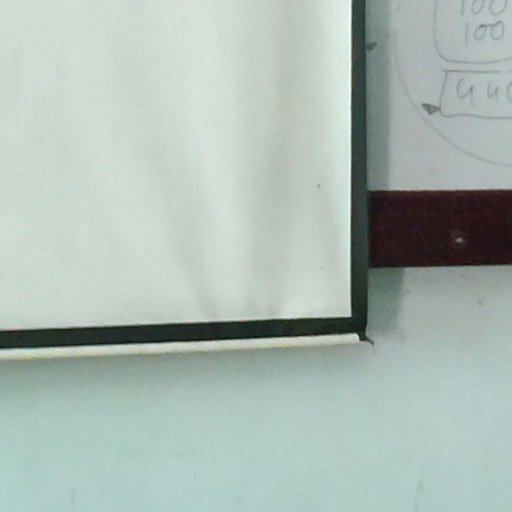 100
100
440